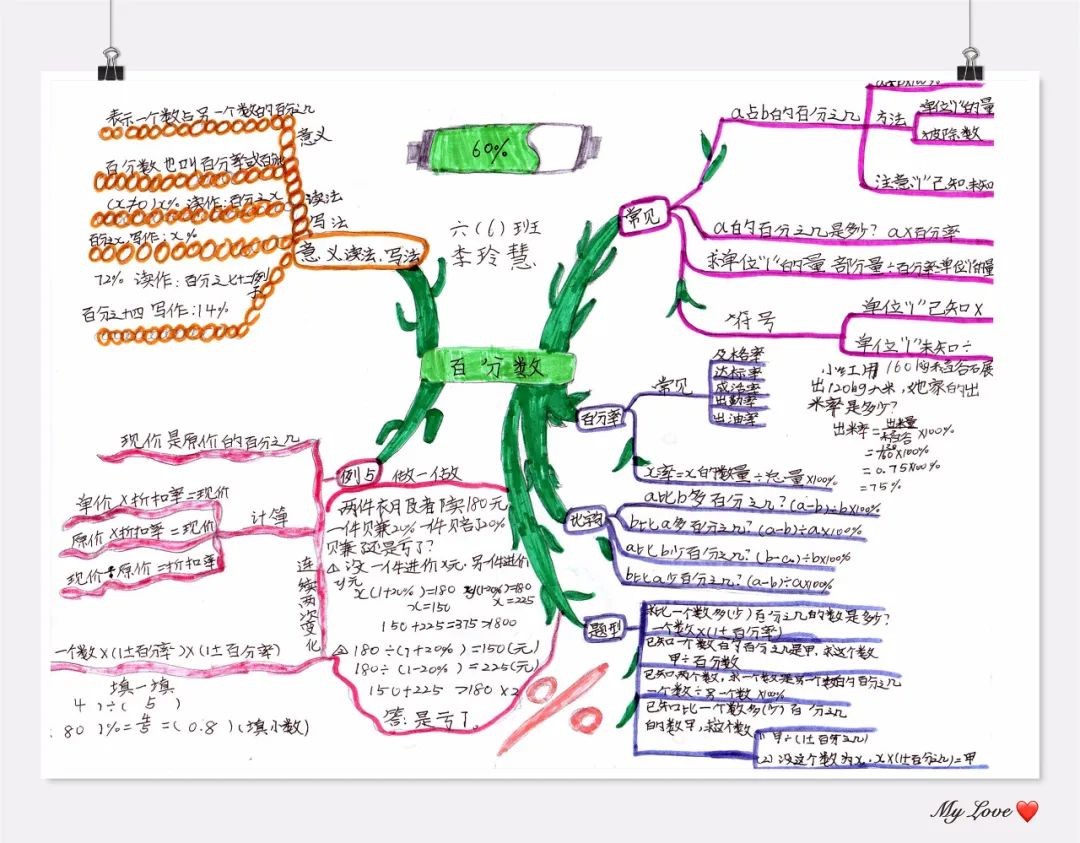 60%
六(6)班
李玲慧
百分数
表示一个数占另一个数的百分之几
意义
百分数也叫百分率或百
(x≠0)x% 读作:百分之x
读法
写法
百分之x 写作:x%
意义读法、写法
72% 读作:百分之七十二
例子
百分之十四 写作:14%
常见
a占b的百分之几
方法
单位"1"的量
被除数
注意"1"已知.未知
a的百分之几是多少? a×百分率
求单位"1"的量 部分量÷百分率=单位"1"的量
符号
单位"1"已知×
单位"1"未知÷
百分率
常见
及格率
达标率
成活率
出勤率
出油率
x率=x的数量÷总量×100%
小红用160kg稻谷碾
出120kg大米,她家的出
米率是多少?
出米率=出米量/稻谷×100%
=120/160×100%
=0.75×100%
=75%
比较
a比b多百分之几?(a-b)÷b×100%
b比a多百分之几?(b-a)÷a×100%
a比b少百分之几?(b-a)÷b×100%
b比a少百分之几?(a-b)÷a×100%
题型
求比一个数多(少)百分之几的数是多少?
一个数×(1±百分率)
已知一个数的百分之几是甲,求这个数
甲÷百分数
已知两个数,求一个数是另一个数的百分之几
一个数÷另一个数×100%
已知比一个数多(少)百分之几
的数甲,求这个数
甲÷(1±百分之几)
(2)设这个数为x, x×(1±百分之几)=甲
例5
做一做
现价是原价的百分之几
计算
单价×折扣率=现价
原价×折扣率=现价
现价÷原价=折扣率
连续两次变化
一个数×(1±百分率)×(1±百分率)
填一填
4 )÷( 5 )
80 )%=4/5=(0.8)(填小数)
两件衣服都卖180元
一件赚20%一件亏20%
赚还是亏了?
设一件进价x元,另一件进价
y元
x(1+20%)=180 y(1-20%)=180
x=150 x=225
150+225=375>1800
180÷(1+20%)=150(元)
180÷(1-20%)=225(元)
150+225 >180×2
答:是亏了.
%
My Love